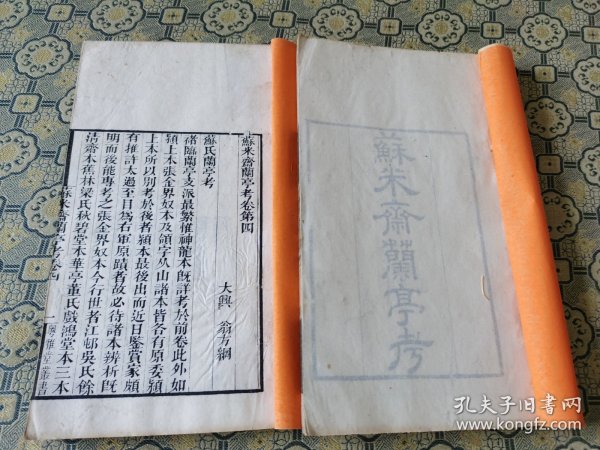 蘇米齋蘭亭考卷第四
大興 翁方綱
蘇氏蘭亭考
褚臨蘭亭支派最繁惟神龍本既詳考於前卷此外如
潁上本張金界奴本及領字从山諸本皆各有原委潁
上本所以別考於後者潁本最後出而近日鑒賞家頗
有推許太過至目為右軍原蹟者故必待諸本辨析既
明而後能專考之張金界奴本今行世者江邨吳氏餘
清齋本蕉林梁氏秋碧堂本華亭董氏戲鴻堂本三本
蘇米齋蘭亭考卷四
一
粵雅堂叢書
蘇米齋蘭亭考
孔夫子旧书网
www.kongfz.com